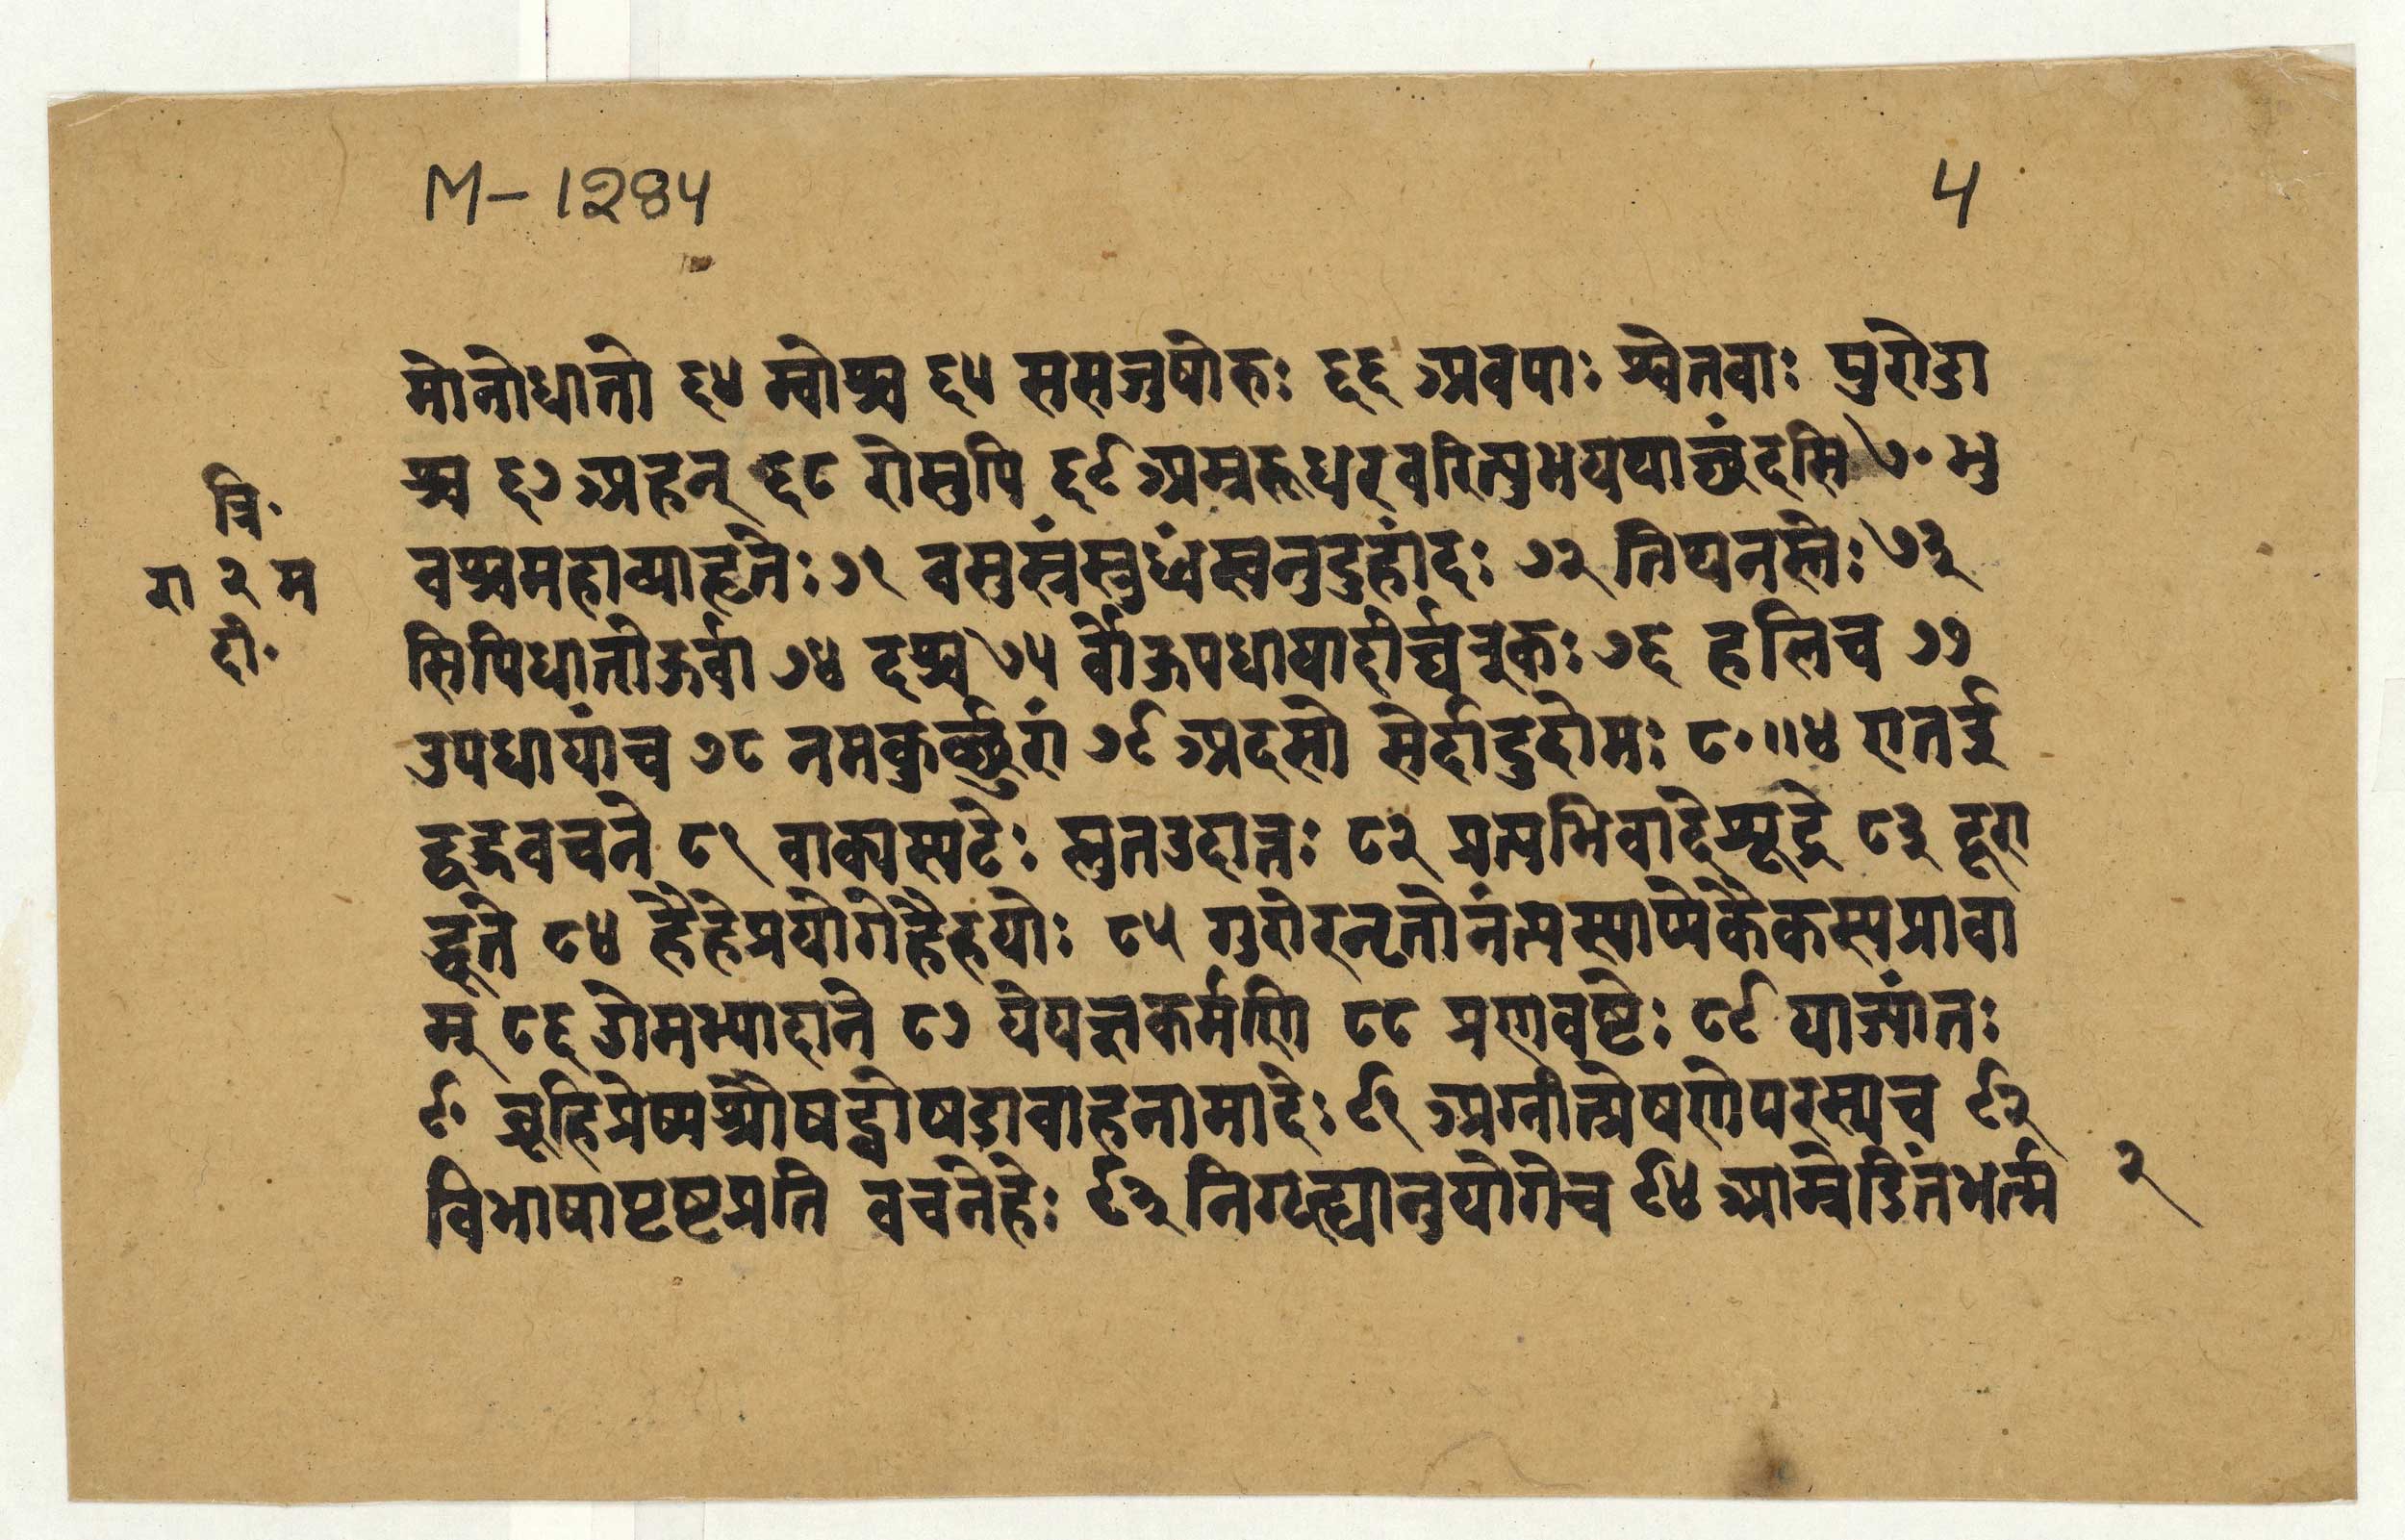 M-1284
4
मोनोधातो ६४ म्वोश्च ६५ ससजुषोरुः ६६ अवयाः श्वेतवाः पुरोडा
श्च ६७ अहन् ६८ रोसुपि ६९ अम्नरूधरवरित्युभयथाछंदसि ७० भु
वश्चमहाव्याहृतेः ७१ वसुस्रंसुध्वंस्वनुडुहांदः ७२ तिप्यनस्तेः ७३
सिपिधातोरुर्वा ७४ दश्च ७५ र्वोरुपधायादीर्घइकः ७६ हलिच ७७
उपधायांच ७८ नभकुर्छुरां ७९ अदसो सेर्दादुदोमः ८० ॥४ एतईद्
बहुवचने ८१ वाक्यस्यटेः प्लुतउदात्तः ८२ प्रत्यभिवादेशूद्रे ८३ दूरा
द्धूते ८४ हैहेप्रयोगेहैहयोः ८५ गुरोरनृतोनंत्यस्याप्येकैकस्यप्राचा
म् ८६ ओमभ्यादाने ८७ येयज्ञकर्मणि ८८ प्रणवष्टेः ८९ याज्यांतः
९० ब्रूहिप्रेष्यश्रौषड्वौषडावाहनामादेः ९१ अग्नीत्प्रेषणेपरस्यच ९२
विभाषापृष्टप्रति वचनेहेः ९३ निगृह्यानुयोगेच ९४ आम्रेडितंभर्त्स
त्रि॰
रा २ म
दी॰
२